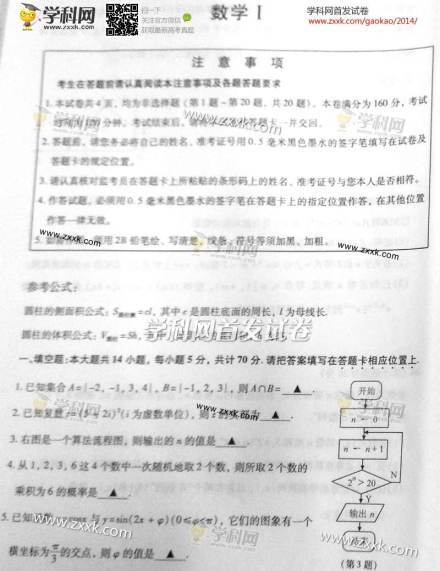 学科网
www.zxxk.com
扫一下
关注官方微信
获取最新高考真题
数学 I
学科网首发试卷
www.zxxk.com/gaokao/2014/
注 意 事 项
考生在答题前请认真阅读本注意事项及各题答题要求
1. 本试卷共4页, 均为非选择题 (第1题~第20题, 共20题). 本卷满分为160分, 考试
时间为120分钟. 考试结束后, 请将 答题卡一并交回.
2. 答题前, 请您务必将自己的姓名、准考证号用0.5毫米黑色墨水的签字笔填写在试卷及
答题卡的规定位置.
3. 请认真核对监考员在答题卡上所粘贴的条形码上的姓名、准考证号与您本人是否相符.
4. 作答试题, 必须用0.5毫米黑色墨水的签字笔在答题卡上的指定位置作答, 在其他位置
作答一律无效.
5. 如 用2B铅笔绘、写清楚, 线条、符号等须加黑、加粗.
参考公式:
圆柱的侧面积公式: S圆柱侧=cl, 其中c是圆柱底面的周长, l为母线长.
圆柱的体积公式: V圆柱=Sh,
学科网首发试卷
一、填空题: 本大题共14小题, 每小题5分, 共计70分. 请把答案填写在答题卡相应位置上.
1. 已知集合A={-2, -1, 3, 4}, B={-1, 2, 3}, 则A∩B= ▲ .
2. 已知复数z=(5+2i)²(i为虚数单位), 则z的实部为 ▲ .
3. 右图是一个算法流程图, 则输出的n的值是 ▲ .
4. 从1, 2, 3, 6这4个数中一次随机地取2个数, 则所取2个数的
乘积为6的概率是 ▲ .
5. 已知函数 y=cosx与y=sin(2x+φ)(0≤φ<π), 它们的图象有一个
横坐标为π/3的交点, 则φ的值是 ▲ .
开始
n←0
n←n+1
2ⁿ>20
N
Y
输出n
结束
(第3题)